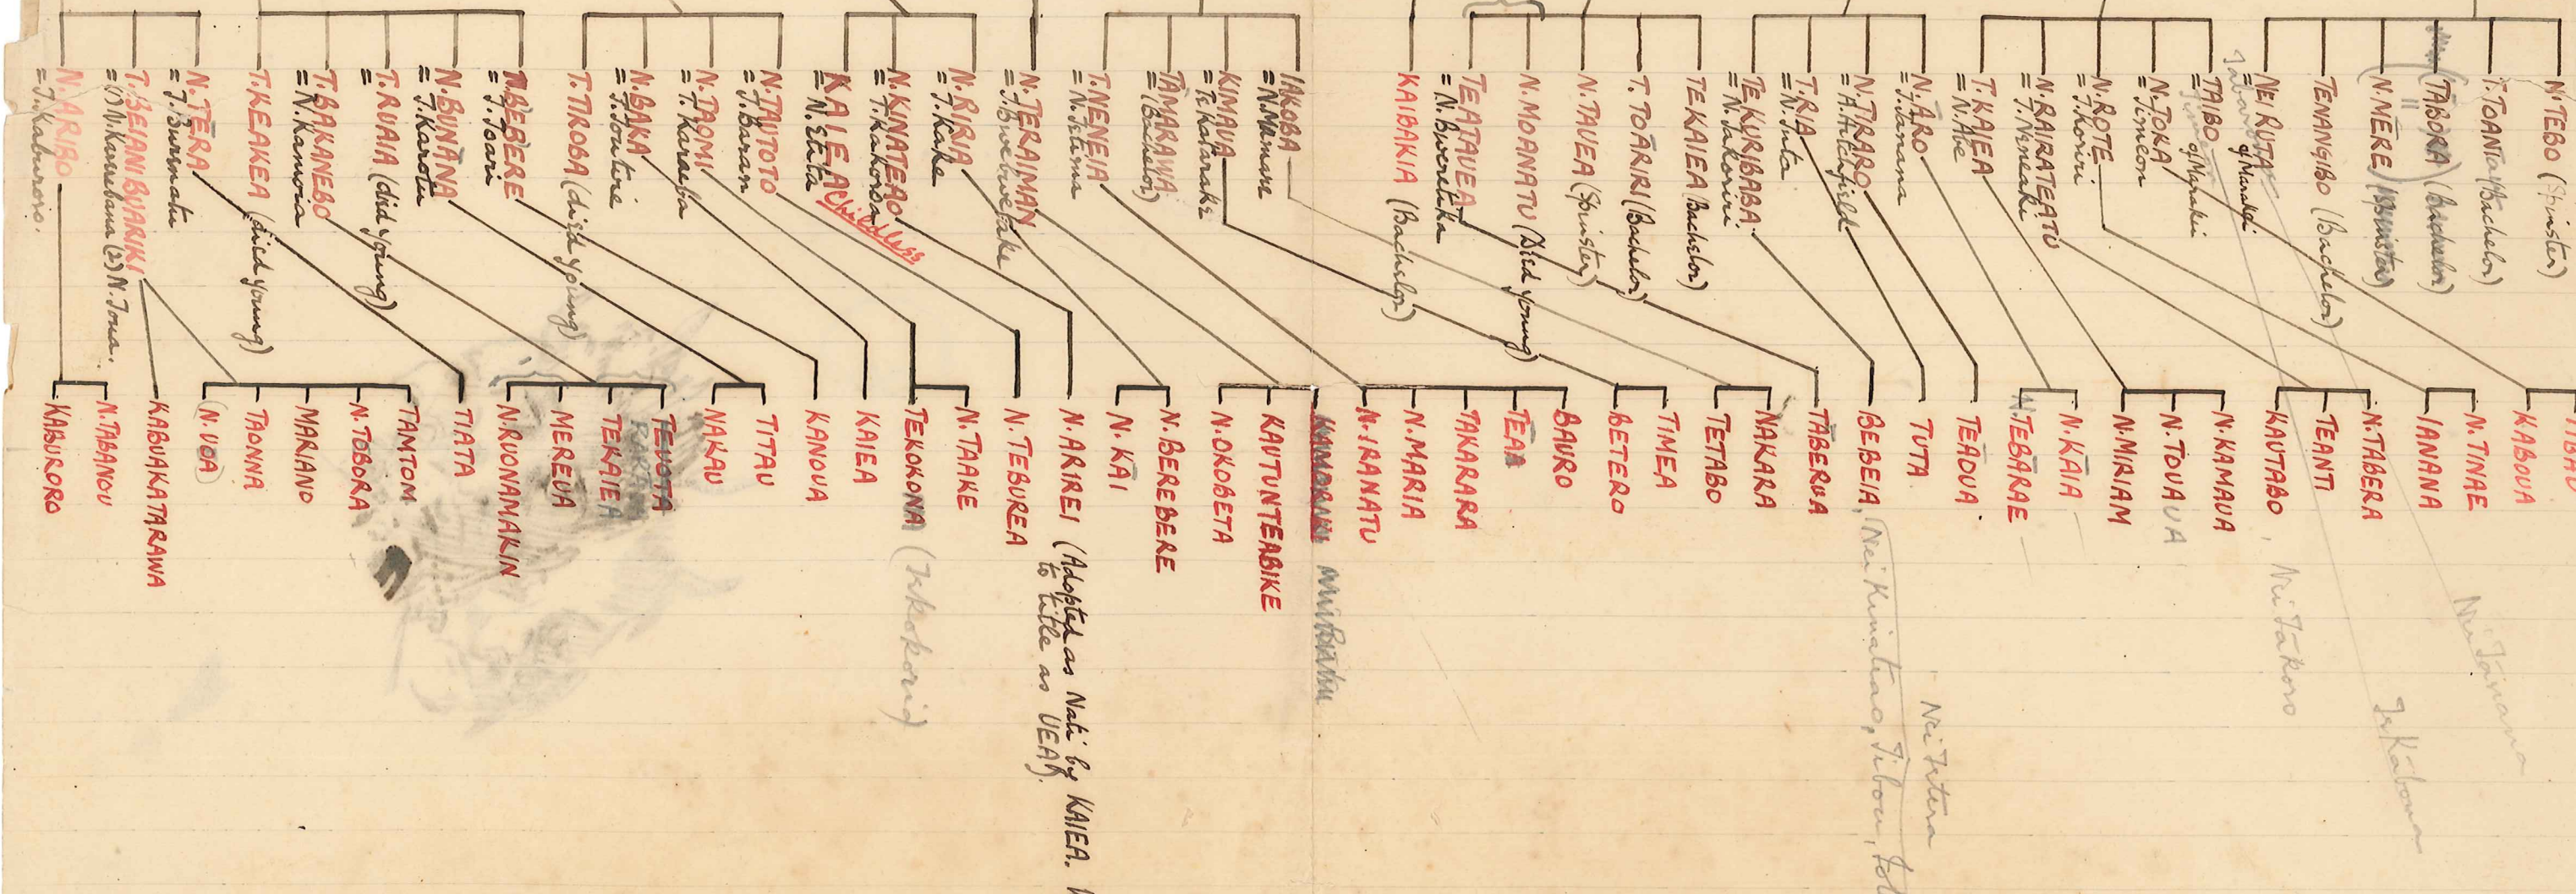 N. ARIBO
= T. Kaburoro.
T. BEIANIBUARIKI
= (1) N. (2) N. Toua.
N. TERA
= T. Burenatu
T. KEAKEA (died young)
T. BAKANEBO
= N. Kamoia
T. RUAIA (died young)
=
N. BUNANA
= T. Karotu
N. BEBERE
= T. Toari
T. TIROBA (died young)
N. BAKA
= T. Toutire
N. TAOMI
= T. Karaebia
N. TAUTOTO
= T. Baran
KAIEA
= N. Eteta
Childless
N. KINATEAO
= T. Kakoroa
N. RIRIA
= T. Kake
N. TERAIMAN
= T. Bwebwetake
T. NENEIA
= N. Tetima
TANARAWA
= (Bachelor)
KIMAUA
= Te Katarake
IAKOBA
= N. Mamare
KAIBAKIA (Bachelor)
TEATAUEA
= N. Bweretika
N. MOANATU (Died young)
N. TAUEA (Spinster)
T. TOARIRI (Bachelor)
TEKAIEA (Bachelor)
TE KURIBABA
= N. Takoriri
T. RIA
= N. Tuta
N. TIRARO
= A. Hitchfield
N. ARO
= T. Tamana
T. KAIEA
= N. Abe
N. RAIRATEATU
= T. Neneaki
N. ROTE
= T. Koriri
N. TOKA
= Timeon
TAIBO
= of Maraki
NEI RUTA
= of Maraki
TENANGIBO (Bachelor)
(N. NERE) (Spinster)
(TABORA) (Bachelor)
T. TOANTA (Bachelor)
N. TEBO (Spinster)
KABURORO
N. TABANOU
KABUAKATARAWA
(N. UOA)
TAONNA
MARIANO
N. TOBORA
TAMTOM
TIATA
N. RUONAMAKIN
MEREUA
TEKAIEA
TEUOTA
NAKAU
TITAU
KANOUA
KAIEA
TEKOKONA (Tekokoria)
N. TAAKE
N. TEBUREA
N. ARIREI (Adopted as Nati by KAIEA.
to title as UEA).
N. KAI
N. BEREBERE
N. OKOBETA
KAUTUNTEABIKE
N. IRANATU
N. MARIA
TAKARARA
TEAA
BAURO
BETERO
TIMEA
TETABO
NAKARA
TABERUA
BEBEIA, Nei Kinateao, Tibou,
TUTA
Nei Tetera
TEAOUA
N. TEBARAE
N. KAIA
N. MIRIAM
N. TOUA
N. KAMAUA
KAUTABO, Nei Takoro
TEANTI
N. TABERA
Te Kabona
IANANA
N. TINAE
Nei Tamana
KABOUA